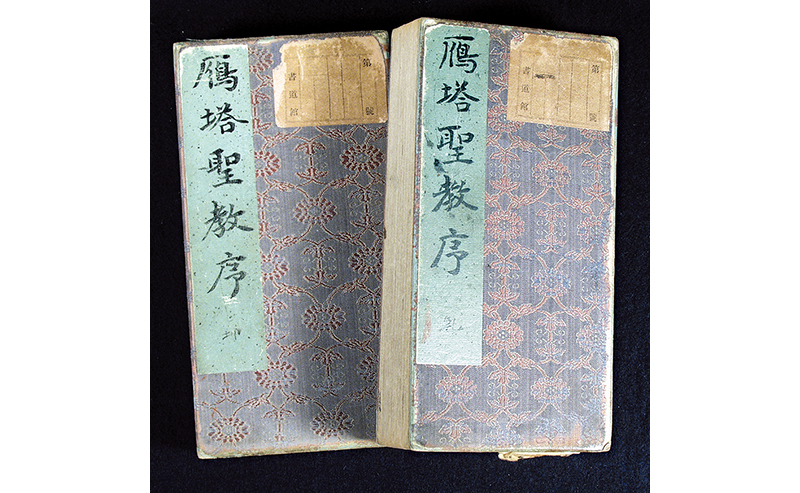 鴈塔聖教序
坤
第 號
書道館
鴈塔聖教序
第 號
書道館